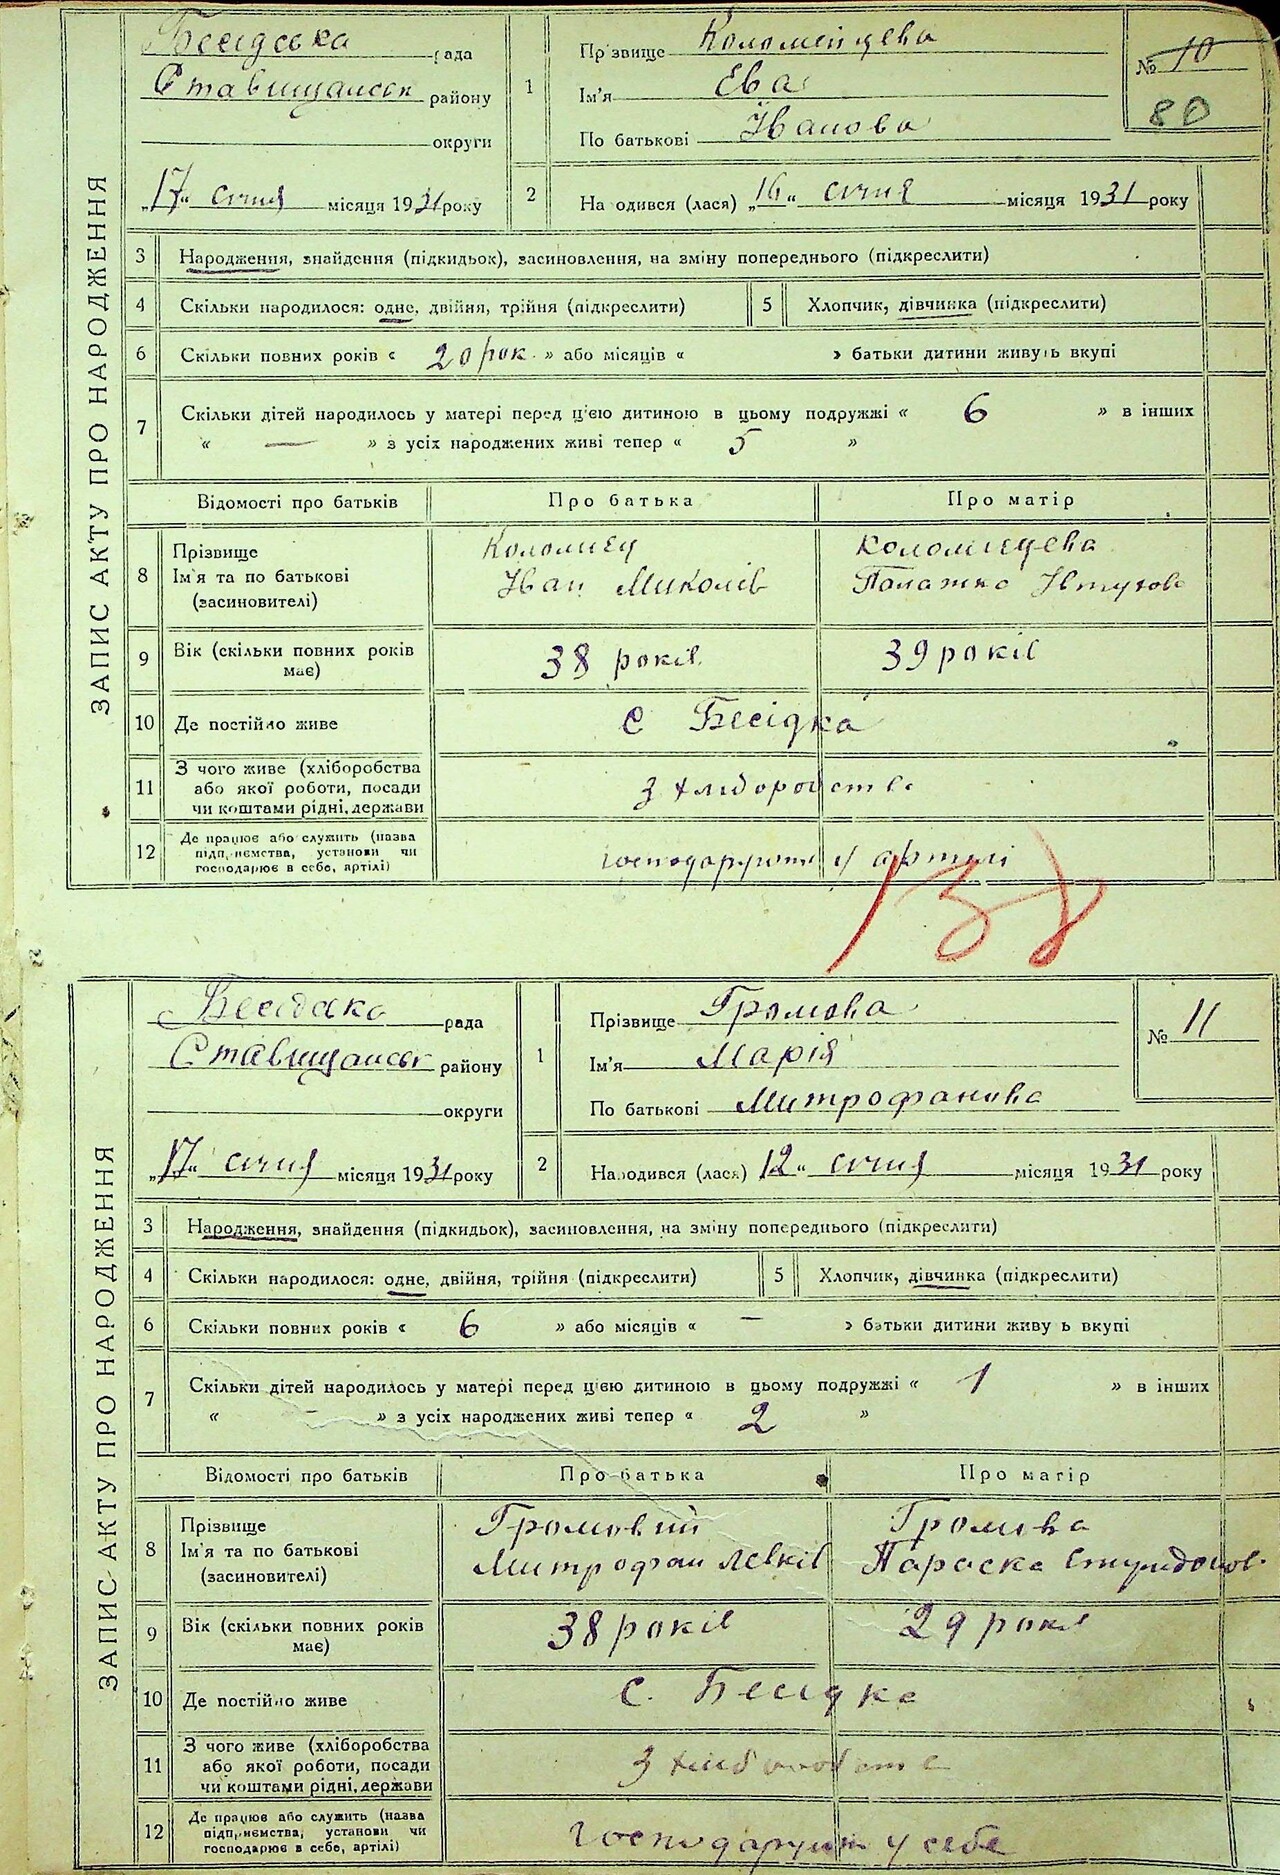 ЗАПИС АКТУ ПРО НАРОДЖЕННЯ
Бесідська рада
Ставищанськ району
округи
„17“ січня місяця 1931 року
1
Прізвище Коломійцева
Ім'я Ева
По батькові Іванова
№ 10
80
2
На одився (лася) „16“ січня місяця 1931 року
3 Народження, знайдення (підкидьок), засиновлення, на зміну попереднього (підкреслити)
4 Скільки народилося: одне, двійня, трійня (підкреслити) 5 Хлопчик, дівчинка (підкреслити)
6 Скільки повних років « 20 рок. » або місяців « » батьки дитини живуть вкупі
7 Скільки дітей народилось у матері перед цією дитиною в цьому подружжі « 6 » в інших
« — » з усіх народжених живі тепер « 5 »
Відомості про батьків Про батька Про матір
8 Прізвище Коломиец Коломицева
Ім'я та по батькові Іван Миколів Палажка
(засиновителі)
9 Вік (скільки повних років має) 38 років 39 років
10 Де постійно живе с Бесідка
11 З чого живе (хліборобства
або якої роботи, посади з хліборобства
чи коштами рідні, держави
12 Де працює або служить (назва
підприємства, установи чи господарують у артилі
господарює в себе, артілі)
138
ЗАПИС АКТУ ПРО НАРОДЖЕННЯ
Бесідска рада
Ставищанськ району
округи
„17“ січня місяця 1931 року
1
Прізвище Громова
Ім'я Марія
По батькові Митрофанова
№ 11
2
Народився (лася) 12“ січня місяця 1931 року
3 Народження, знайдення (підкидьок), засиновлення, на зміну попереднього (підкреслити)
4 Скільки народилося: одне, двійня, трійня (підкреслити) 5 Хлопчик, дівчинка (підкреслити)
6 Скільки повних років « 6 » або місяців « — » батьки дитини живу ь вкупі
7 Скільки дітей народилось у матері перед цією дитиною в цьому подружжі « 1 » в інших
« — » з усіх народжених живі тепер « 2 »
Відомості про батьків Про батька Про матір
8 Прізвище Громовий Громова
Ім'я та по батькові Митрофан Левків Параска
(засиновителі)
9 Вік (скільки повних років має) 38 років 29 років
10 Де постійно живе с. Бесідка
11 З чого живе (хліборобства
або якої роботи, посади З хліборобства
чи коштами рідні, держави
12 Де працює або служить (назва
підприємства, установи чи господарують у себе
господарює в себе, артілі)